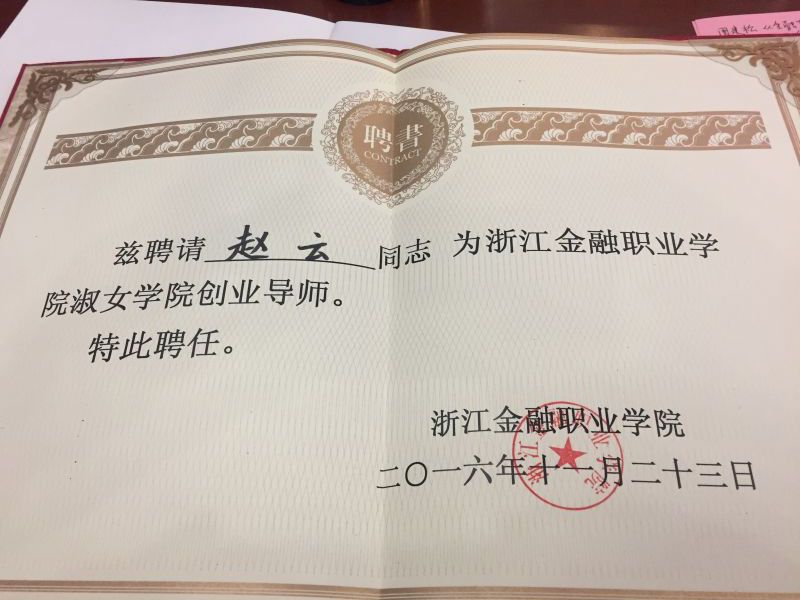 聘書
CONTRACT
兹聘请 赵云 同志 为浙江金融职业学
院淑女学院创业导师。
特此聘任。
浙江金融职业学院
二〇一六年十一月二十三日
浙江金融职业学院